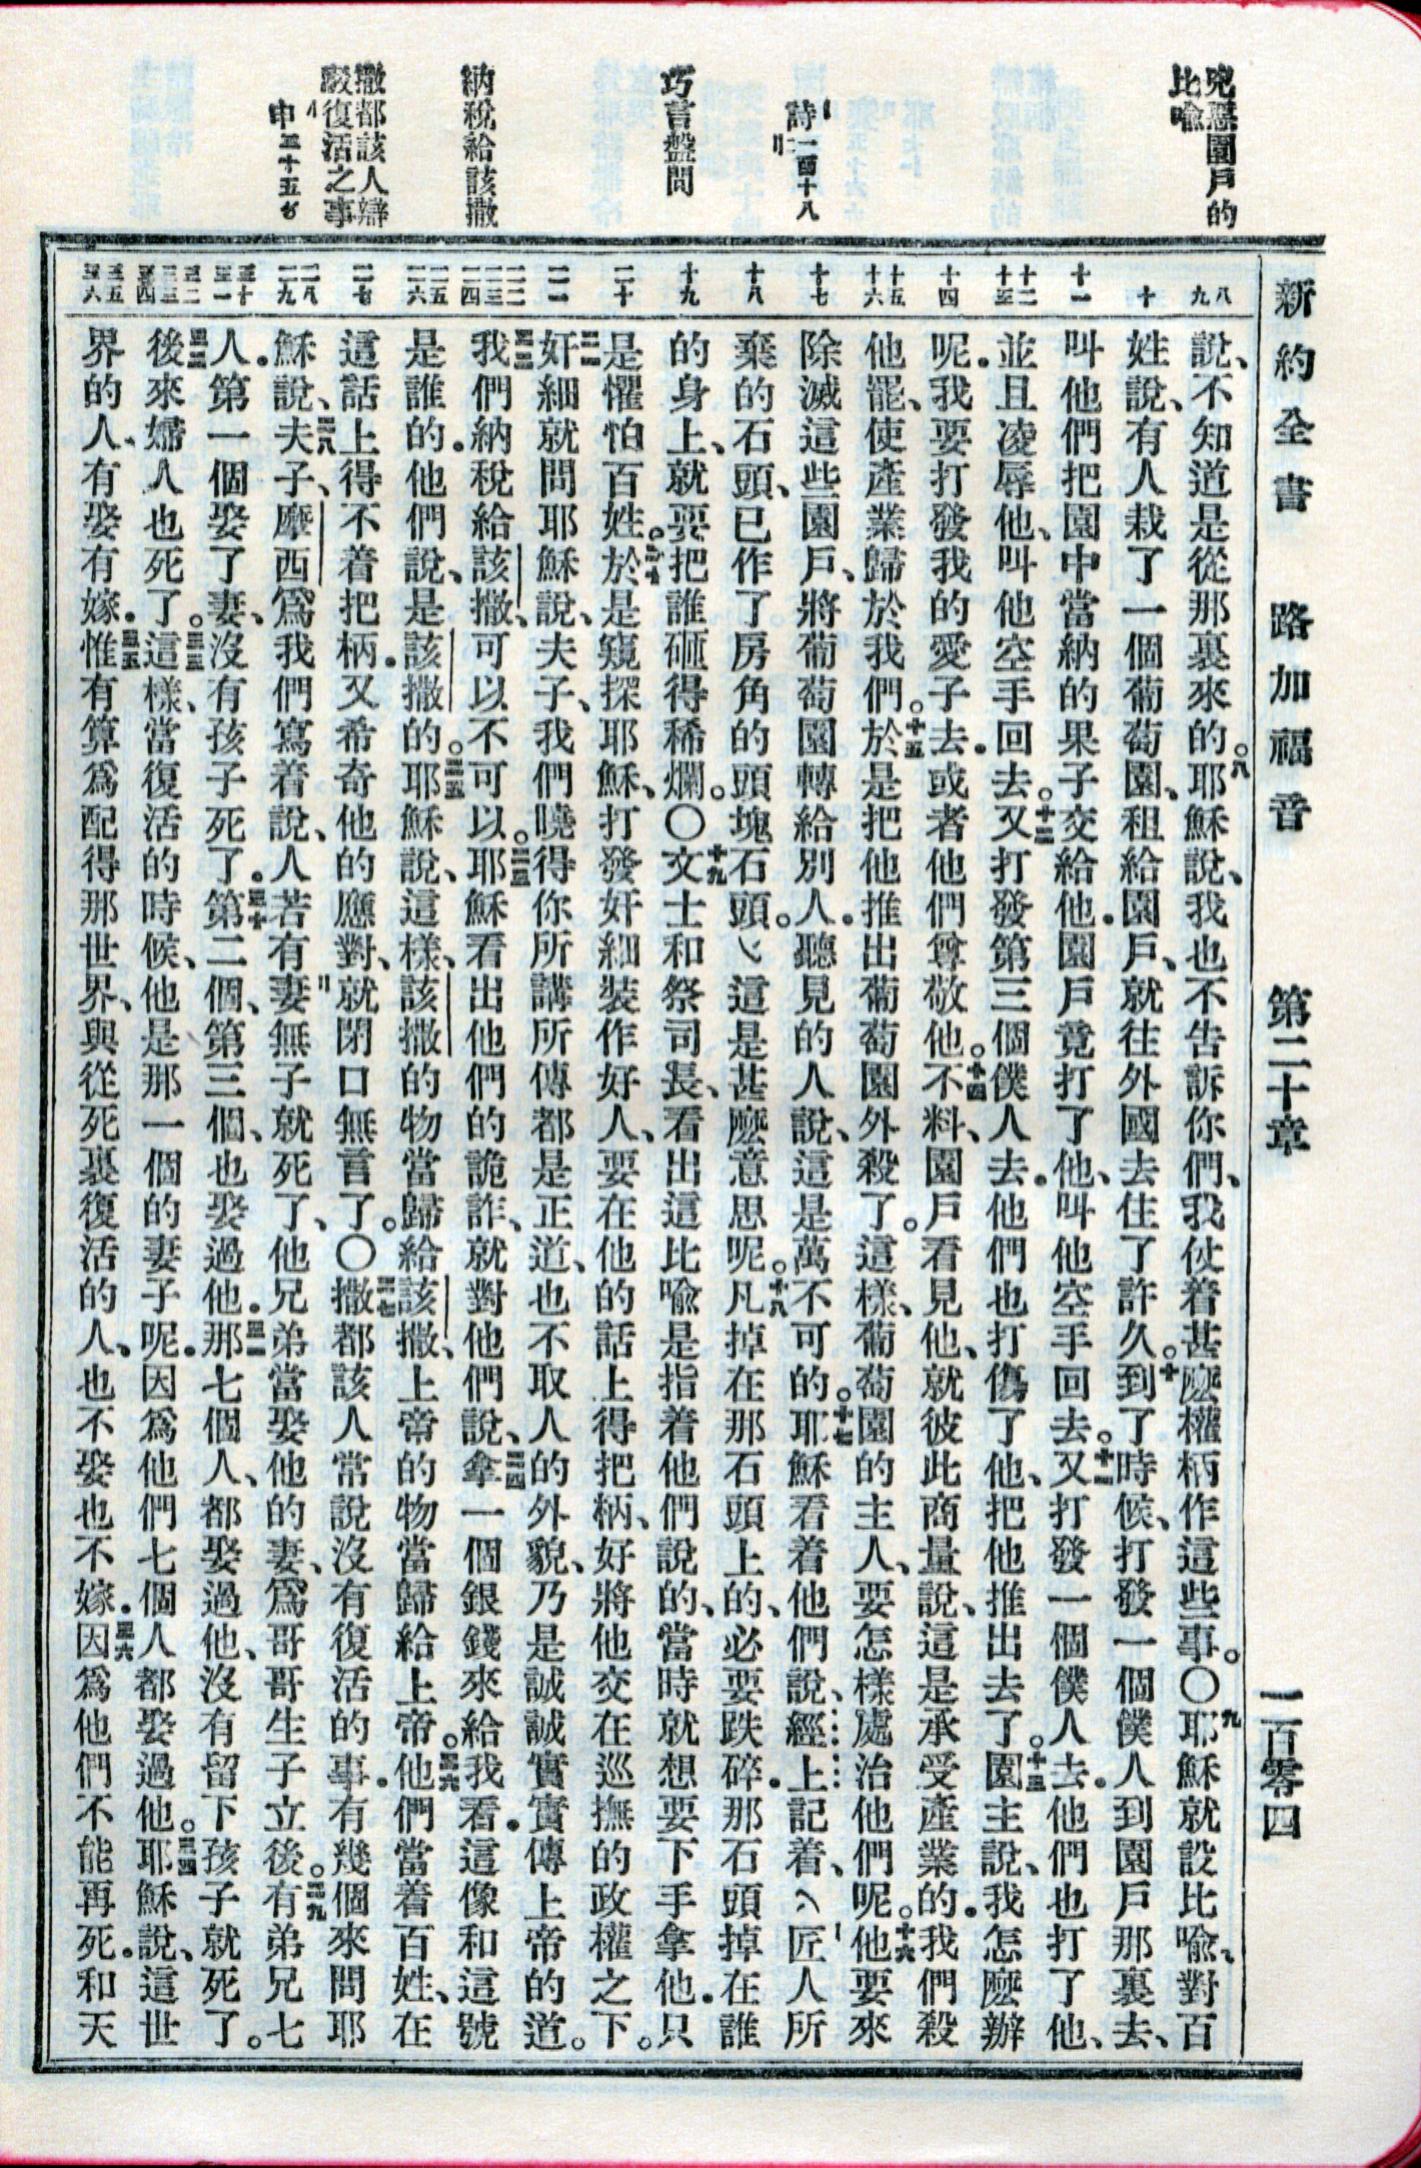 兇惡園戶的
比喻
詩一百十八
巧言盤問
納稅給該撒
撒都該人辯
駁復活之事
申二十五
新約全書 路加福音 第二十章 一百零四
八 九
十
十一
十二 十三
十四
十五 十六
十七
十八
十九
二十
二一
二二 二三 二四
二五 二六
二七
二八 二九
三十 三一
三二 三三 三四
三五 三六
說、不知道是從那裏來的。八耶穌說、我也不告訴你們、我仗着甚麼權柄作這些事。〇九耶穌就設比喻、對百
姓說、有人栽了一個葡萄園、租給園戶、就往外國去住了許久。十到了時候、打發一個僕人到園戶那裏去、
叫他們把園中當納的果子交給他．園戶竟打了他、叫他空手回去。十一又打發一個僕人去．他們也打了他、
並且凌辱他、叫他空手回去。十二又打發第三個僕人去．他們也打傷了他、把他推出去了。十三園主說、我怎麼辦
呢．我要打發我的愛子去．或者他們尊敬他。十四不料、園戶看見他、就彼此商量說、這是承受產業的．我們殺
他罷、使產業歸於我們。十五於是把他推出葡萄園外殺了。這樣、葡萄園的主人、要怎樣處治他們呢。十六他要來
除滅這些園戶、將葡萄園轉給別人．聽見的人說、這是萬不可的。十七耶穌看着他們說、經上記着、匠人所
棄的石頭、已作了房角的頭塊石頭。這是甚麼意思呢。十八凡掉在那石頭上的、必要跌碎．那石頭掉在誰
的身上、就要把誰砸得稀爛。〇十九文士和祭司長、看出這比喻是指着他們說的、當時就想要下手拿他．只
是懼怕百姓。二十於是窺探耶穌、打發奸細裝作好人、要在他的話上得把柄、好將他交在巡撫的政權之下。
二一奸細就問耶穌說、夫子、我們曉得你所講所傳都是正道、也不取人的外貌、乃是誠誠實實傳上帝的道。
二二我們納稅給該撒、可以不可以。二三耶穌看出他們的詭詐、就對他們說、二四拿一個銀錢來給我看．這像和這號
是誰的．他們說、是該撒的。二五耶穌說、這樣、該撒的物當歸給該撒、上帝的物當歸給上帝。二六他們當着百姓、在
這話上得不着把柄．又希奇他的應對、就閉口無言了。〇二七撒都該人常說沒有復活的事．有幾個來問耶
穌說、二八夫子、摩西爲我們寫着說、人若有妻無子就死了、他兄弟當娶他的妻、爲哥哥生子立後。二九有弟兄七
人．第一個娶了妻、沒有孩子死了．三十第二個、第三個、也娶過他．三一那七個人、都娶過他、沒有留下孩子就死了。
三二後來婦人也死了。三三這樣、當復活的時候、他是那一個的妻子呢．因爲他們七個人都娶過他。三四耶穌說、這世
界的人、有娶有嫁．三五惟有算爲配得那世界、與從死裏復活的人、也不娶也不嫁．三六因爲他們不能再死．和天